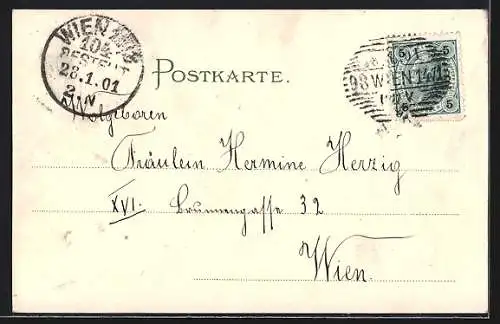 WIEN
104
BESTELLT
28.1.01
2.N
POSTKARTE.
5 5
98 WIEN 14/1
V
5 5
Wolgeboren
Fräulein Hermine Herzig
XVI. Brunnengasse 32
Wien.